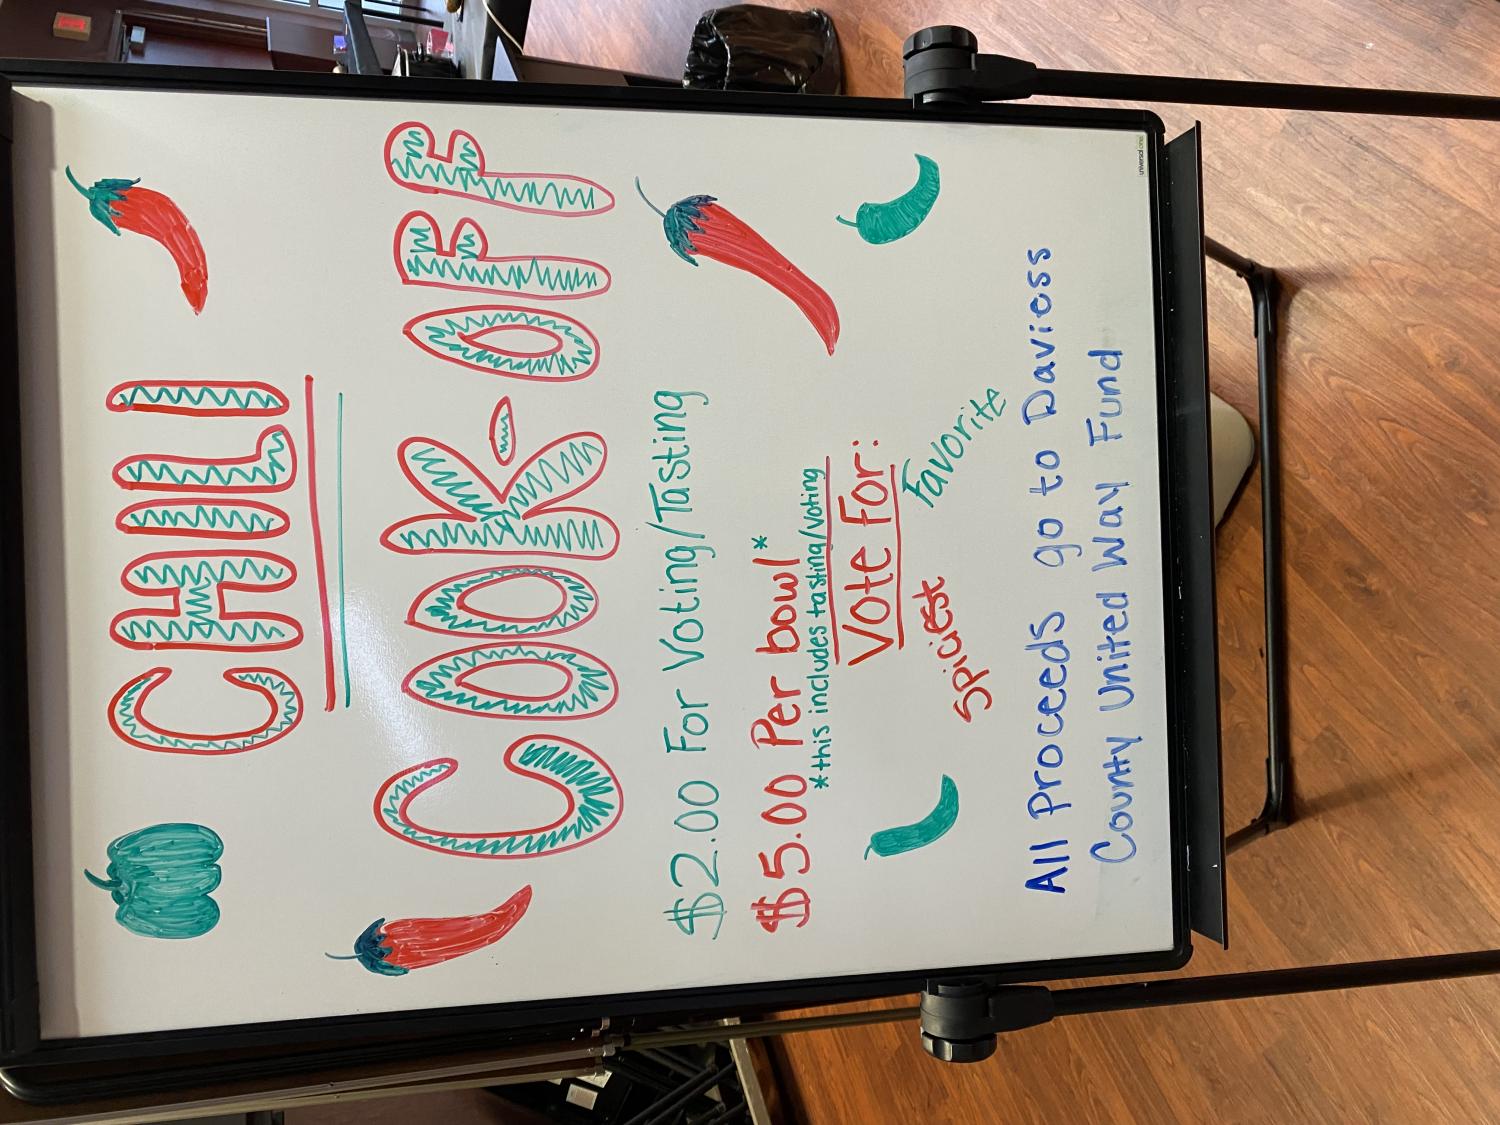 CHILI
COOK-OFF
$2.00 For Voting/Tasting
$5.00 Per bowl*
*this includes tasting/voting
Vote For:
Spiciest Favorite
All Proceeds go to Daviess
County United Way Fund
universal one